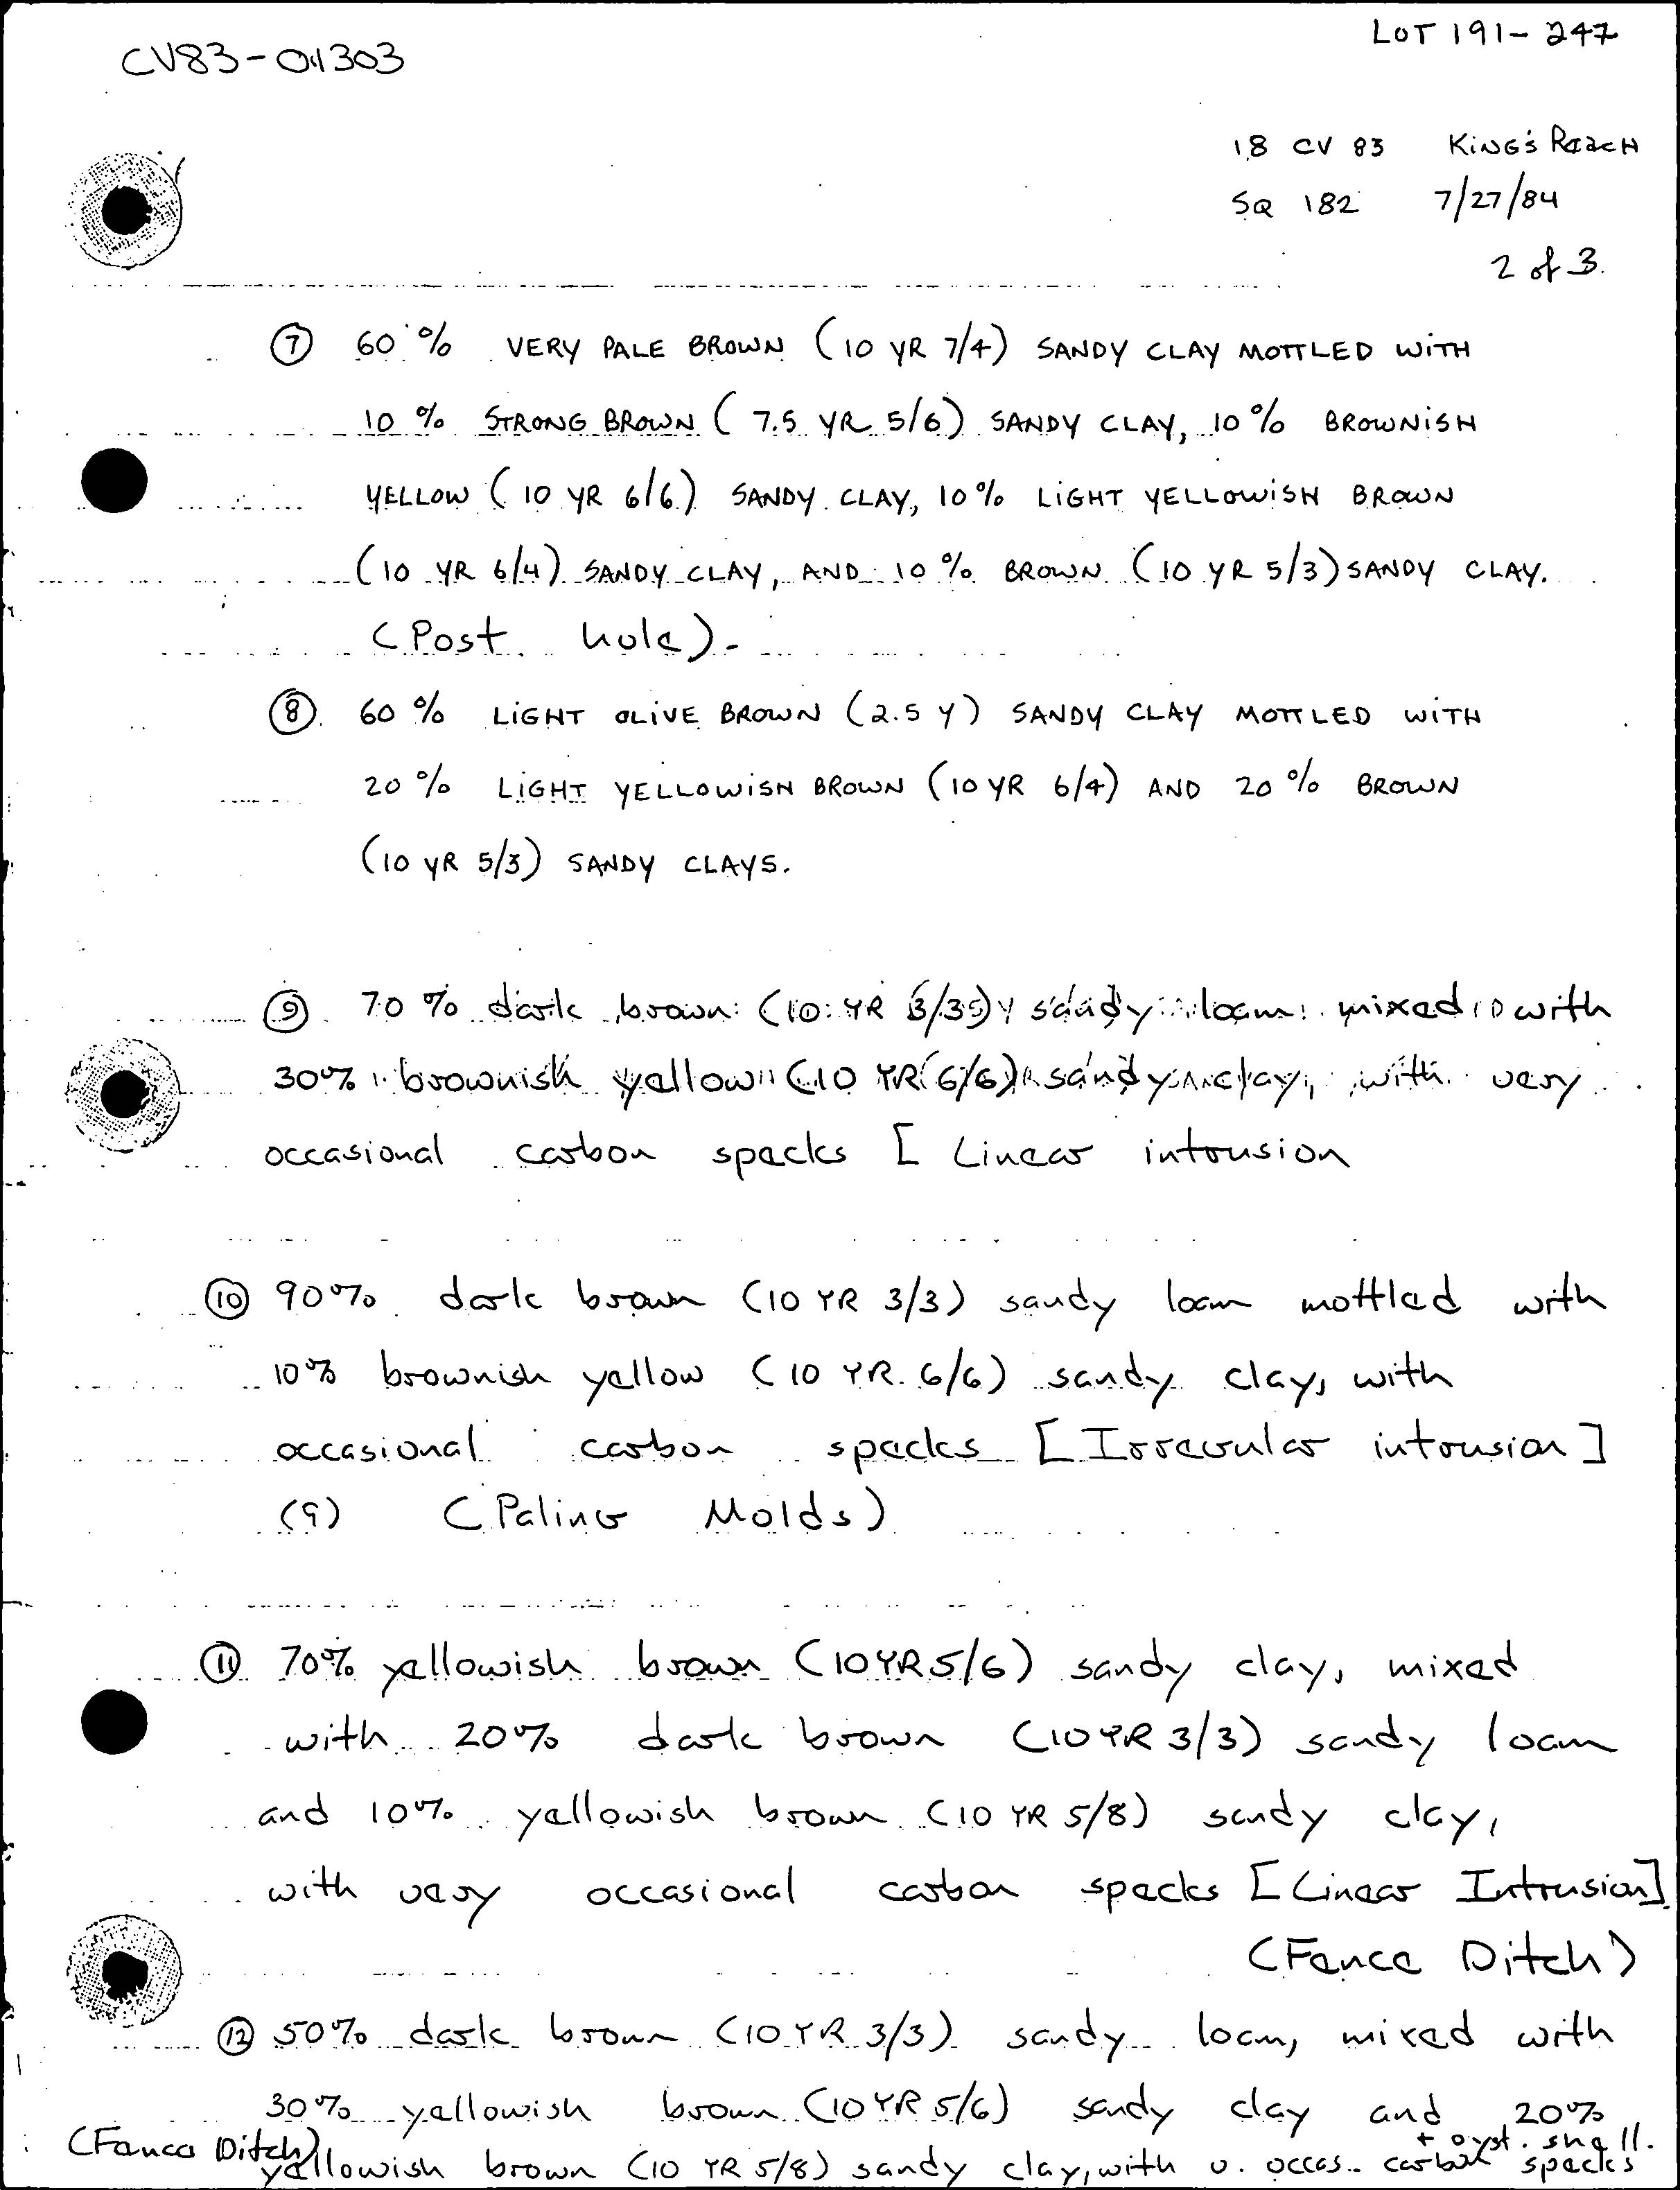 LOT 191-247
CV83-01303
18 CV 83 KiNG's REACH
SQ 182 7/27/84
2 of 3
⑦ 60 % VERY PALE BROWN (10 YR 7/4) SANDY CLAY MOTTLED WiTH
10 % STRONG BROWN (7.5 YR 5/6) SANDY CLAY, 10 % BROWNiSH
YELLOW (10 YR 6/6) SANDY CLAY, 10% LiGHT YELLOWiSH BROWN
(10 YR 6/4) SANDY CLAY, AND 10 % BROWN (10 YR 5/3) SANDY CLAY.
(Post hole).
⑧ 60 % LiGHT OLiVE BROWN (2.5 Y) SANDY CLAY MOTTLED WiTH
20 % LiGHT YELLOWiSH BROWN (10 YR 6/4) AND 20 % BROWN
(10 YR 5/3) SANDY CLAYS.
⑨ 70 % dark brown (10 YR 3/3) sandy loam mixed with
30% brownish yellow (10 YR 6/6) sandy clay, with very
occasional carbon specks [Linear intrusion
⑩ 90% dark brown (10 YR 3/3) sandy loam mottled with
10% brownish yellow (10 YR 6/6) sandy clay, with
occasional carbon specks [Irregular intrusion]
(9) (Paling Molds)
⑪ 70% yellowish brown (10YR5/6) sandy clay, mixed
with 20% dark brown (10YR 3/3) sandy loam
and 10% yellowish brown (10 YR 5/8) sandy clay,
with very occasional carbon specks [Linear Intrusion]
(Fence Ditch)
⑫ 50% dark brown (10 YR 3/3) sandy loam, mixed with
30% yellowish brown (10YR 5/6) sandy clay and 20%
+ oyst. shell.
(Fence Ditch)
yellowish brown (10 YR 5/8) sandy clay, with v. occas. carbon specks